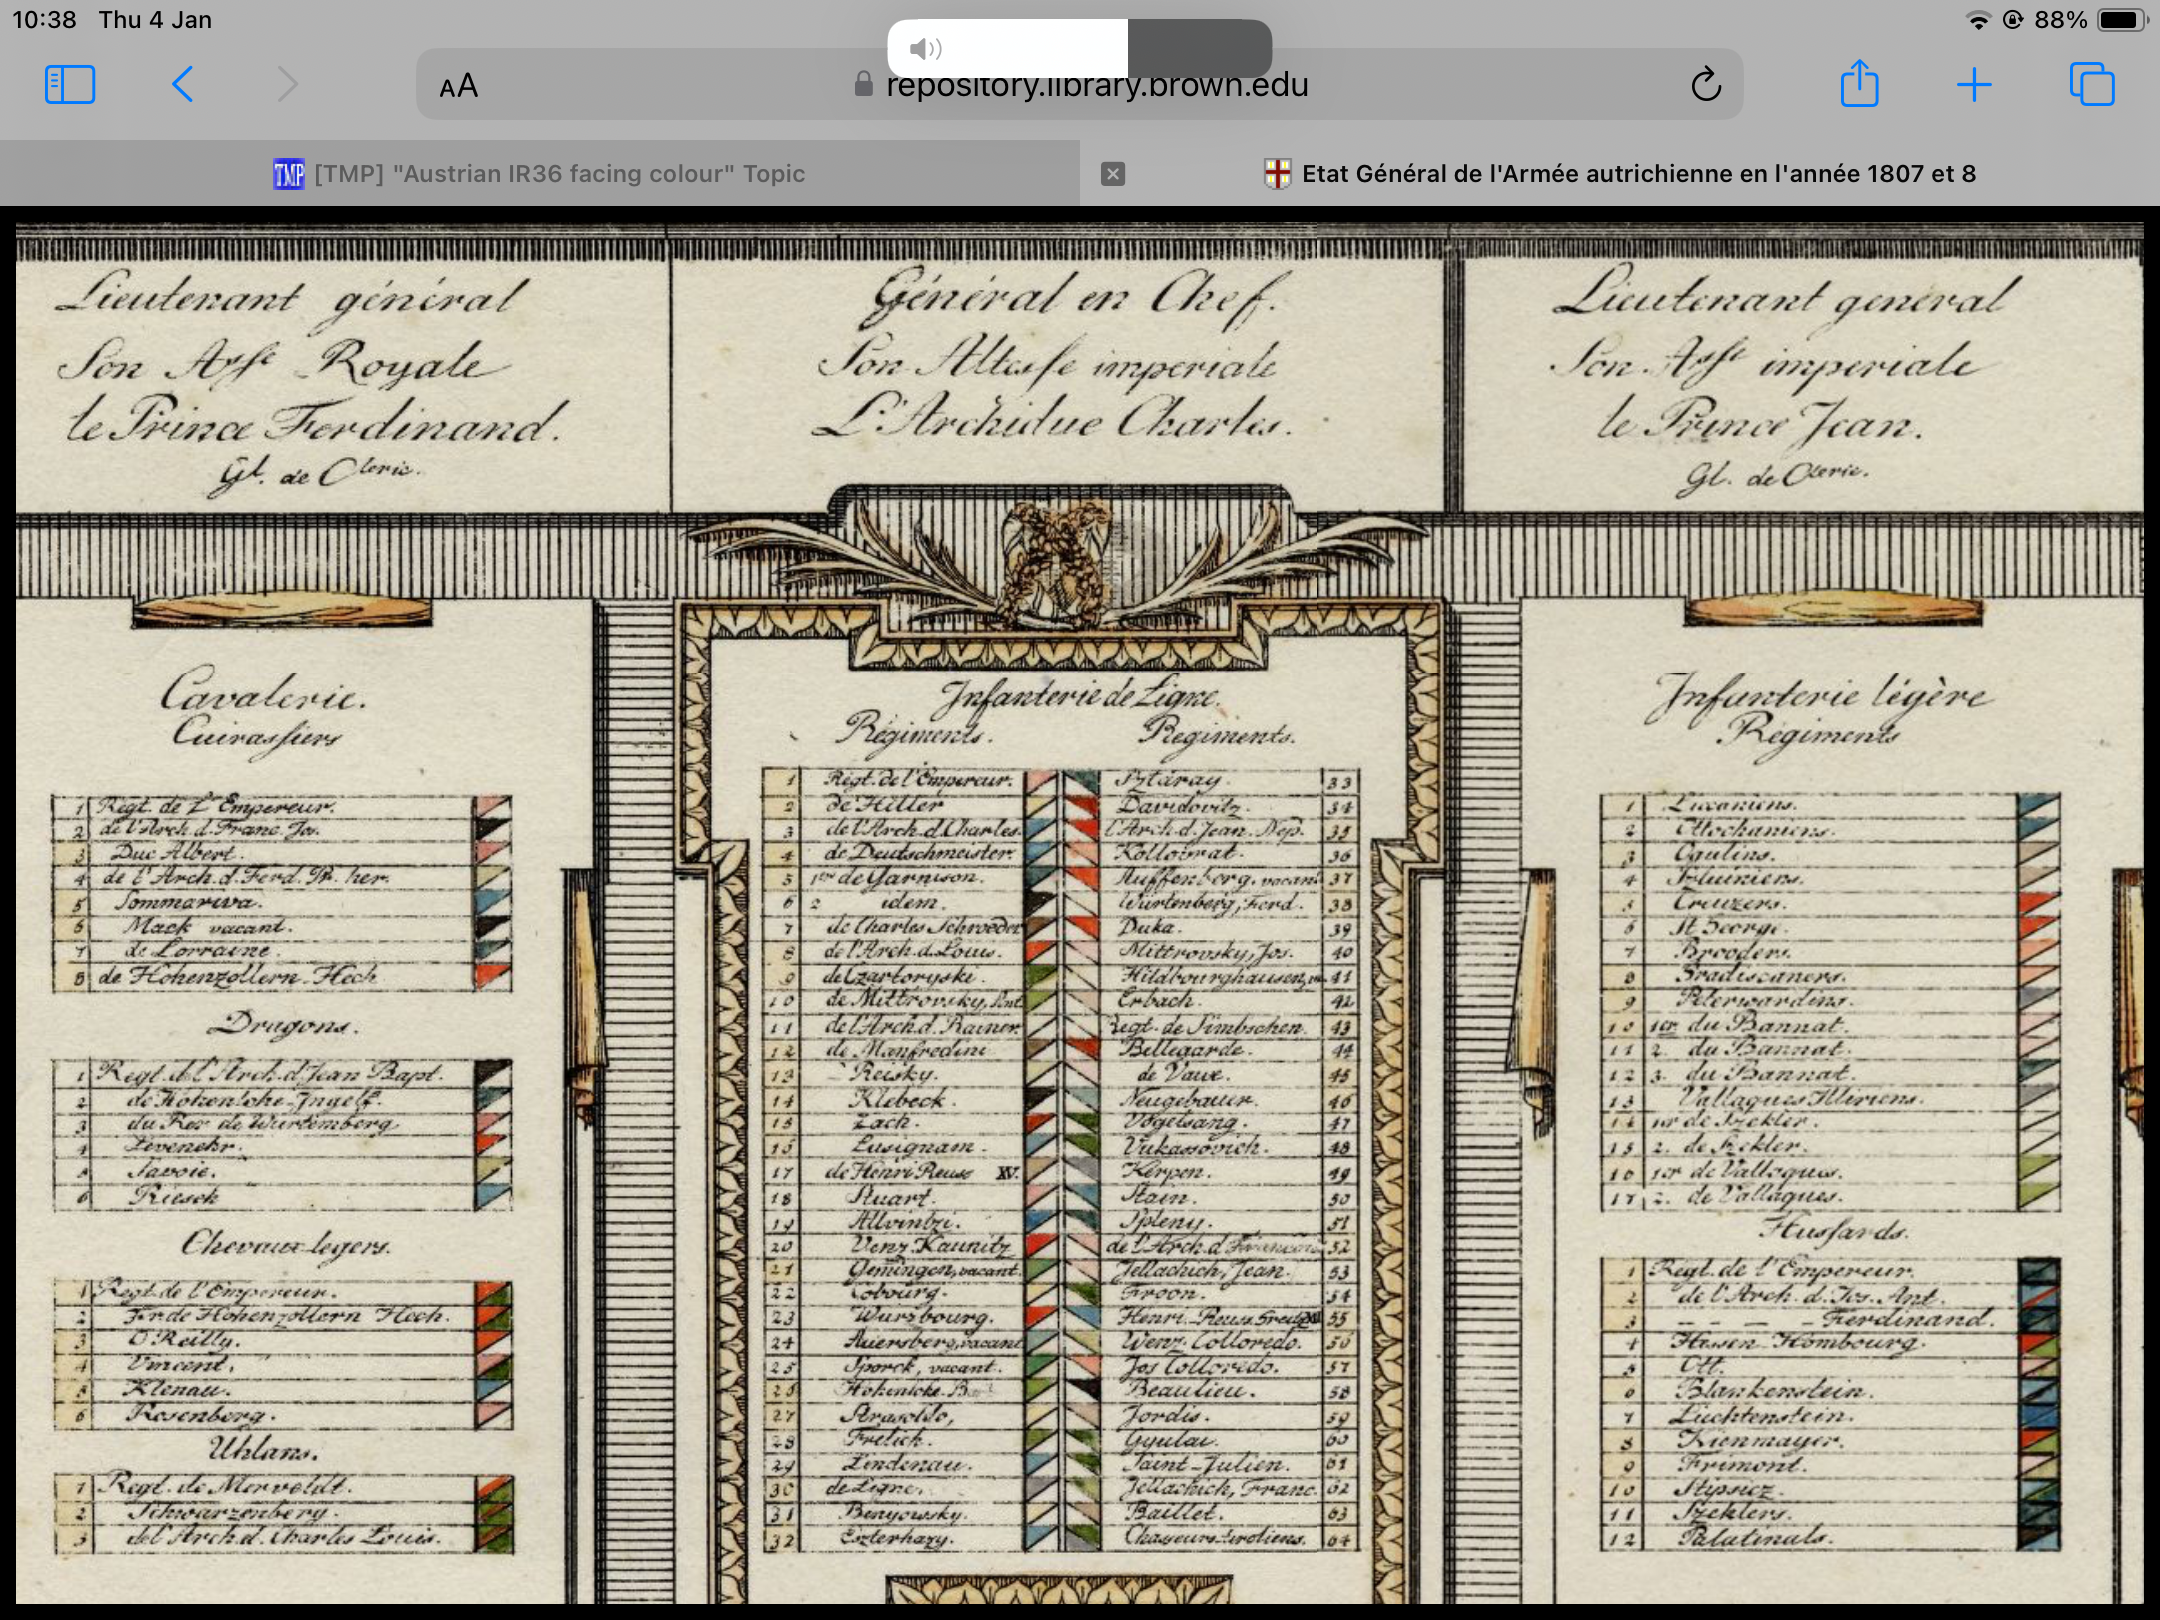 10:38 Thu 4 Jan
88%
AA
repository.library.brown.edu
TMP [TMP] "Austrian IR36 facing colour" Topic
Etat Général de l'Armée autrichienne en l'année 1807 et 8
Lieutenant général
Son Assᵉ Royale
le Prince Ferdinand.
Gl. de
Général en Chef.
Son Altesse imperiale
L'Archiduc Charles.
Lieutenant general
Son Assᵉ imperiale
le Prince Jean.
Gl. de
Cavalerie.
Cuirassiers
1 Regt. de L'Empereur.
2 de l'Arch.d. Franc. Jos.
3 Duc Albert.
4 de l'Arch.d. Ferd. her.
5 Sommariva.
6 Mack vacant.
7 de Lorraine.
8 de Hohenzollern-Hech
Dragons.
1 Regt. de l'Arch.d'Jean Bapt.
2 de Hohenlohe-Ingelf.
3 du Roy de Würtemberg
4 Levenehr.
5 Savoie.
6 Riesch
Chevaux legers.
1 Regt.de l'Empereur.
2 Fr de Hohenzollern Hech.
3 O'Reilly.
4 Vincent.
5 Klenau.
6 Rosenberg.
Uhlans.
1 Regt. de Merveldt.
2 Schwarzenberg.
3 de l'Arch.d. Charles Louis.
Infanterie de Ligne.
Régiments. Regiments.
1 Régt. de l'Empereur. Sztaray. 33
2 de Hiller Davidovitz. 34
3 de l'Arch.d.Charles. l'Arch.d.Jean.Nep. 35
4 de Deutschmeister. Kollovrat. 36
5 1er de Garnison. Auffenberg, vacant 37
6 2 idem. Würtenberg, Ferd. 38
7 de Charles Schroeder Duka. 39
8 de l'Arch.d.Louis. Mittrovsky, Jos. 40
9 de Czartoryski. Hildbourghausen, 41
10 de Mittrovsky, Ant. Erbach. 42
11 de l'Arch.d. Rainer. Regt. de Simbschen. 43
12 de Manfredini Bellegarde. 44
13 Reisky. de Vaux. 45
14 Klebeck. Neugebauer. 46
15 Zach. Vogelsang. 47
16 Lusignam. Vukassovich. 48
17 de Henri Reuss XV. Kerpen. 49
18 Stuart. Stain. 50
19 Allvintzi. Spleny. 51
20 Venz Kaunitz de l'Arch.d 52
21 Gemingen, vacant. Jellachich, Jean. 53
22 Cobourg. Froon. 54
23 Würzbourg. Henri Reuss Greitz 55
24 Auersberg, vacant Wenz Colloredo. 56
25 Sporck, vacant. Jos Colloredo. 57
26 Hohenlohe. B Beaulieu. 58
27 Strasoldo, Jordis. 59
28 Frelich. Gyulai. 60
29 Lindenau. Saint-Julien. 61
30 de Ligne. Jellachich, Franc. 62
31 Benyowsky. Baillet. 63
32 Eszterhazy. Chasseurs tiroliens. 64
Infanterie légère
Regiments
1 Liccaniens.
2 Ottochaniens.
3 Ogulins.
4 Sluiniens.
5 Creuzers.
6 St George.
7 Brooders.
8 Gradiscaners.
9 Peterwardins.
10 1er du Bannat.
11 2. du Bannat.
12 3. du Bannat.
13 Vallaques Illiriens.
14 1er de Szekler.
15 2. de Szekler.
16 1er de Vallaques.
17 2. de Vallaques.
Hussards.
1 Regt. de l'Empereur.
2 de l'Arch.d. Jos. Ant.
3 – – – – Ferdinand.
4 Hessen Hombourg.
5 Ott.
6 Blankenstein.
7 Liechtenstein.
8 Kienmayer.
9 Frimont.
10 Stipsicz.
11 Szeklers.
12 Palatinals.